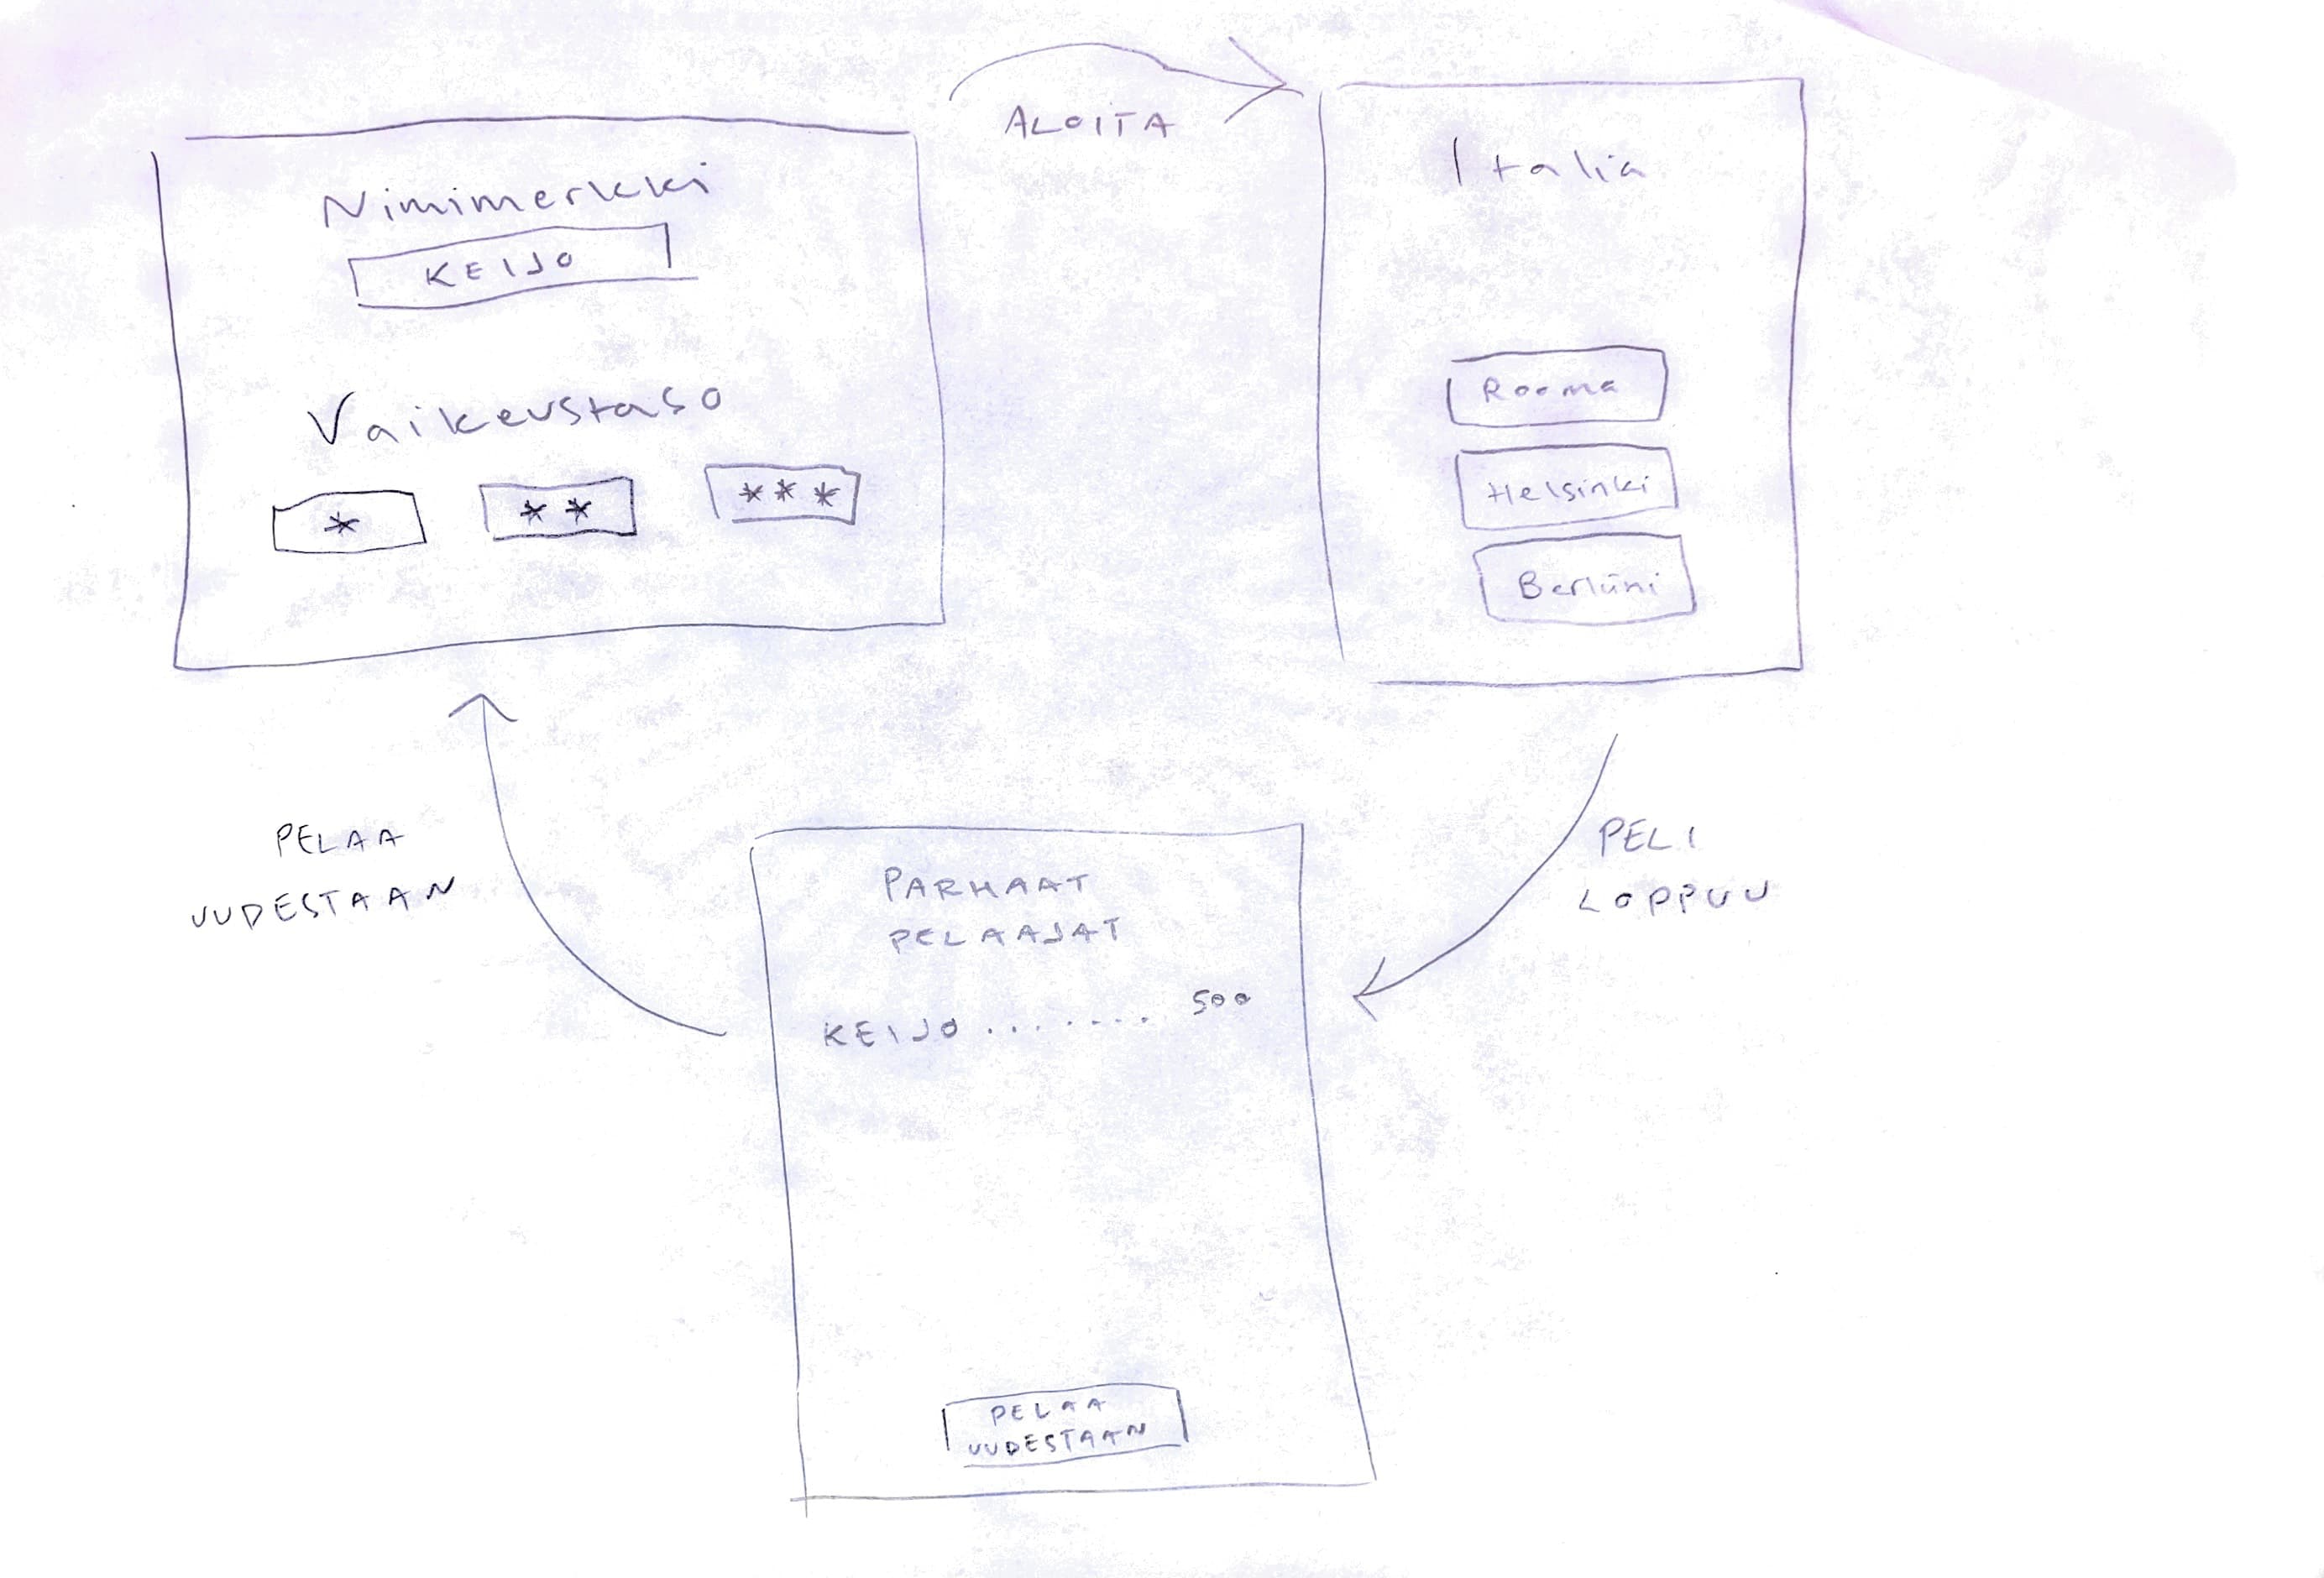 Nimimerkki
KEIJO
Vaikeustaso
*
* *
* * *
ALOITA
Italia
Rooma
Helsinki
Berliini
PELI
LOPPUU
PARHAAT
PELAAJAT
KEIJO ........ 500
PELAA
UUDESTAAN
PELAA
UUDESTAAN